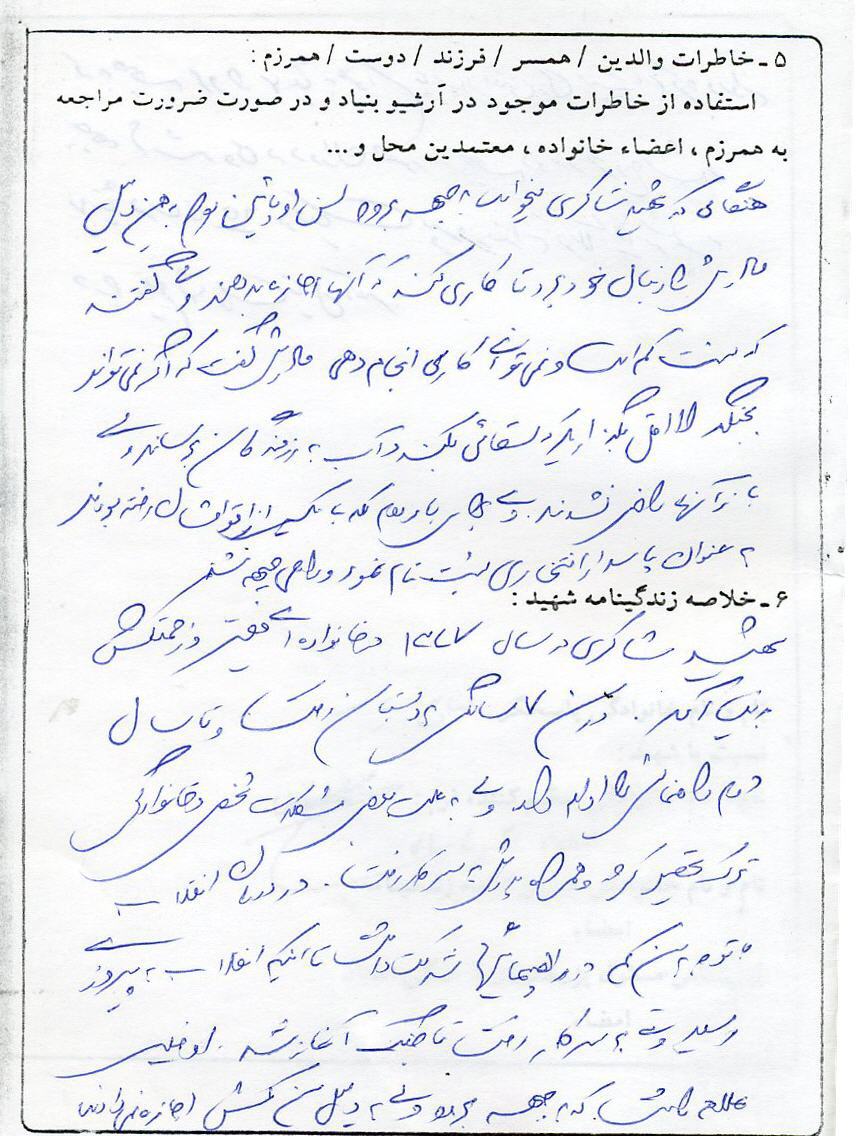 ۵ ـ خاطرات والدین / همسر / فرزند / دوست / همرزم :
استفاده از خاطرات موجود در آرشیو بنیاد و در صورت ضرورت مراجعه
به همرزم ، اعضاء خانواده ، معتمدین محل و...
هنگامی که شهید شاکری میخواست به جبهه برود سن او پائین بود به همین دلیل
مادرش را دنبال خود برد تا کاری کند که آنها اجازه بدهند ولی گفتند
که سنت کم است و نمی توانی کاری انجام دهی مادرش گفت که اگر نمی تواند
بجنگد لااقل بگذارید سقائی بکند و آب به رزمندگان برساند ولی
باز آنها راضی نشدند. ولی برای بار دوم که با یکی از اقوامشان رفته بودند
به عنوان پاسدار افتخاری ثبت نام نمود و راهی جبهه شد
۶ ـ خلاصه زندگینامه شهید :
شهید شاکری در سال ۱۳۴۷ در خانواده ای فقیر و زحمتکش
بدنیا آمد. در سن ۷ سالگی به دبستان رفت و تا سال
دوم راهنمائی را ادامه داد ولی به علت بعضی مشکلات شخصی و خانوادگی
ترک تحصیل کرد و همراه پدرش به سر کار رفت. در دوران انقلاب
با توجه به سن کم در راهپیمائیها شرکت داشت تا اینکه انقلاب به پیروزی
رسید و به سر کار رفت تا جنگ آغاز شد. او خیلی
علاقه داشت که به جبهه برود ولی به دلیل سن کمش اجازه نمی دادند